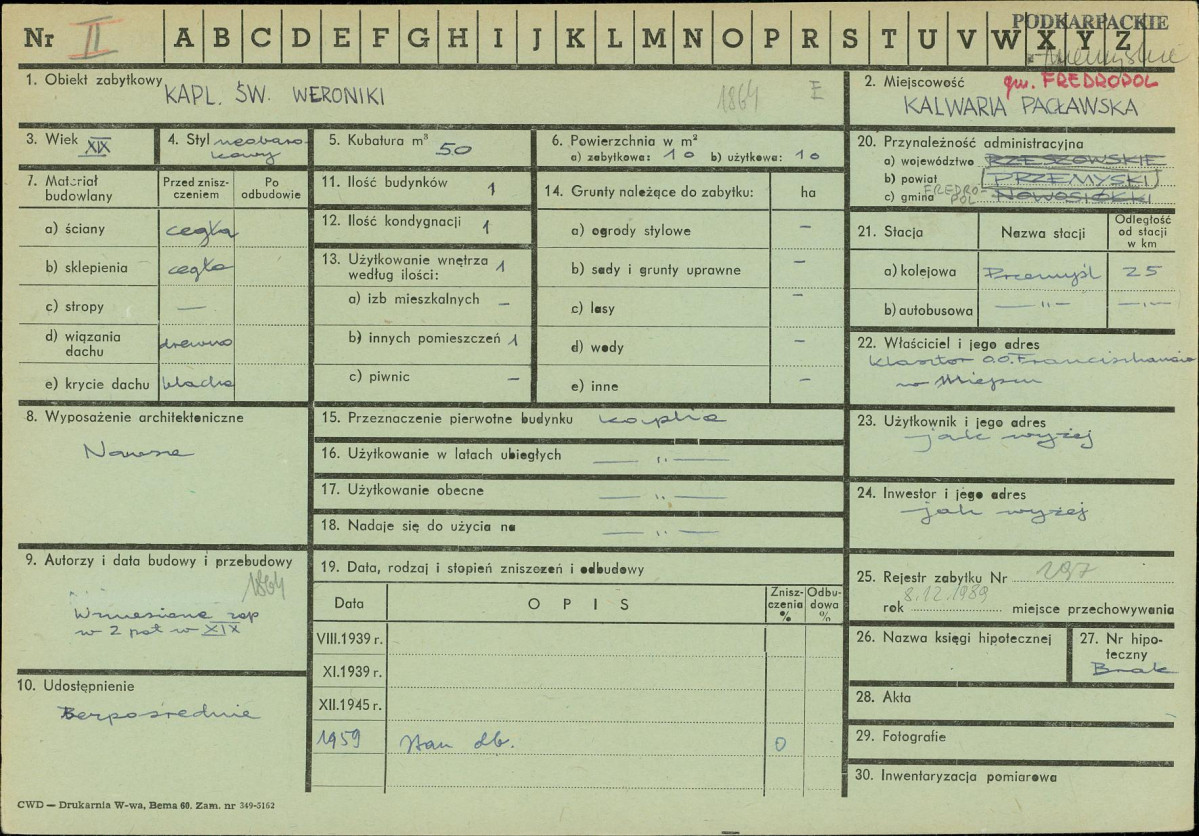 PODKARPACKIE
Nr II A B C D E F G H I J K L M N O P R S T U V W X Y Z
przemyskie
1. Obiekt zabytkowy KAPL. ŚW. WERONIKI 1864 E
2. Miejscowość gm. FREDROPOL
KALWARIA PACŁAWSKA
3. Wiek XIX
4. Styl neobaro-
kowy
5. Kubatura m³ 50
6. Powierzchnia w m²
a) zabytkowa: 10 b) użytkowa: 10
20. Przynależność administracyjna
a) województwo RZESZOWSKIE
b) powiat PRZEMYSKI
c) gmina FREDRO-
POL NOWOSIÓŁKI
7. Materiał
budowlany
Przed znisz-
czeniem
Po
odbudowie
a) ściany cegła
b) sklepienia cegła
c) stropy —
d) wiązania
dachu drewno
e) krycie dachu blacha
11. Ilość budynków 1
12. Ilość kondygnacji 1
13. Użytkowanie wnętrza
według ilości: 1
a) izb mieszkalnych —
b) innych pomieszczeń 1
c) piwnic —
14. Grunty należące do zabytku: ha
a) ogrody stylowe —
b) sady i grunty uprawne —
c) lasy —
d) wody —
e) inne —
21. Stacja Nazwa stacji
Odległość
od stacji
w km
a) kolejowa Przemyśl 25
b) autobusowa —"— —"—
22. Właściciel i jego adres
Klasztor O.O. Franciszkanów
w Miejscu
8. Wyposażenie architektoniczne
15. Przeznaczenie pierwotne budynku kaplica
16. Użytkowanie w latach ubiegłych —"—
17. Użytkowanie obecne —"—
18. Nadaje się do użycia na —"—
23. Użytkownik i jego adres
jak wyżej
24. Inwestor i jego adres
jak wyżej
9. Autorzy i data budowy i przebudowy
1864
Wzniesiona zap
w 2 poł w XIX
10. Udostępnienie
Bezpośrednie
19. Data, rodzaj i stopień zniszczeń i odbudowy
Data OPIS
Znisz-
czenia
%
Odbu-
dowa
%
VIII.1939 r.
XI.1939 r.
XII.1945 r.
1959 stan db. 0
25. Rejestr zabytku Nr 297
rok 8.12.1989 miejsce przechowywania
26. Nazwa księgi hipotecznej
27. Nr hipo-
teczny
Brak
28. Akta
29. Fotografie
30. Inwentaryzacja pomiarowa
CWD — Drukarnia W-wa, Bema 60. Zam. nr 349-5162